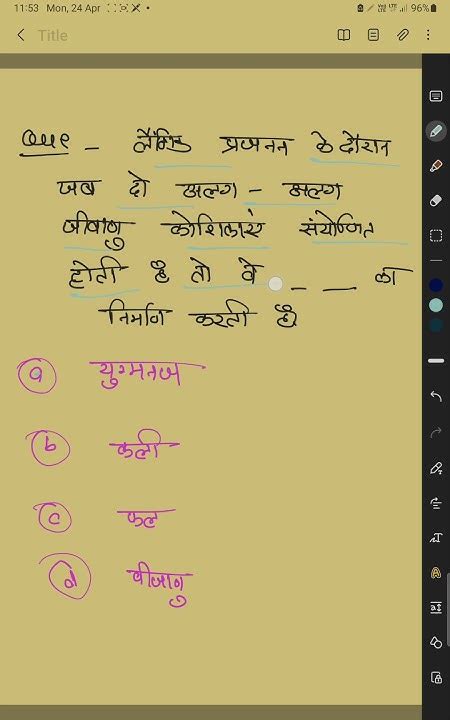 11:53 Mon, 24 Apr
96%
Title
Que - लैंगिक प्रजनन के दौरान
जब दो अलग - अलग
जीवाणु कोशिकाएं संयोजित
होती है तो वे _ _ का
निर्माण करती है
a युग्मनज
b कली
c फल
d बीजाणु